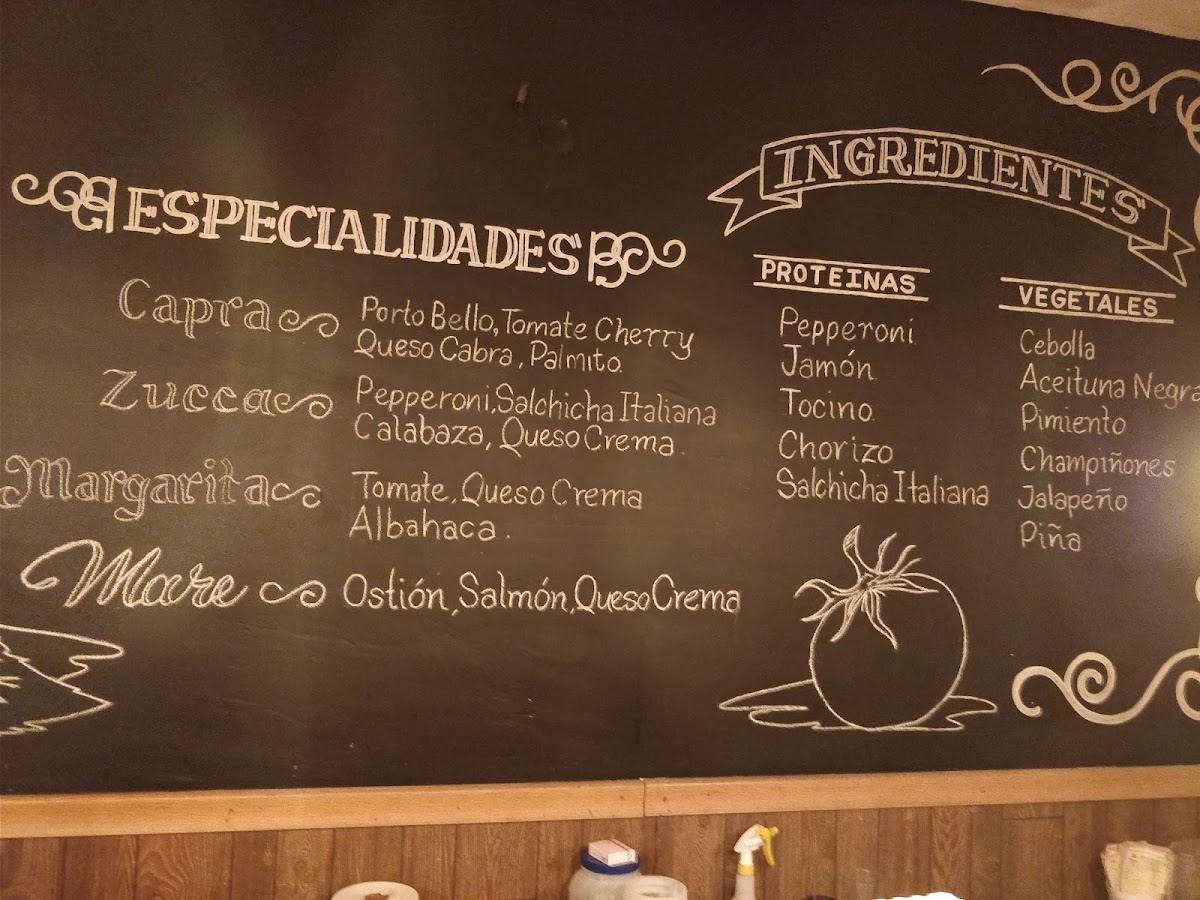 ESPECIALIDADES
Capra
Porto Bello, Tomate Cherry
Queso Cabra, Palmito
Zucca
Pepperoni, Salchicha Italiana
Calabaza, Queso Crema.
Margarita
Tomate, Queso Crema
Albahaca.
Mare
Ostión, Salmón, Queso Crema
INGREDIENTES
PROTEINAS
Pepperoni
Jamón
Tocino
Chorizo
Salchicha Italiana
VEGETALES
Cebolla
Aceituna Negra
Pimiento
Champiñones
Jalapeño
Piña